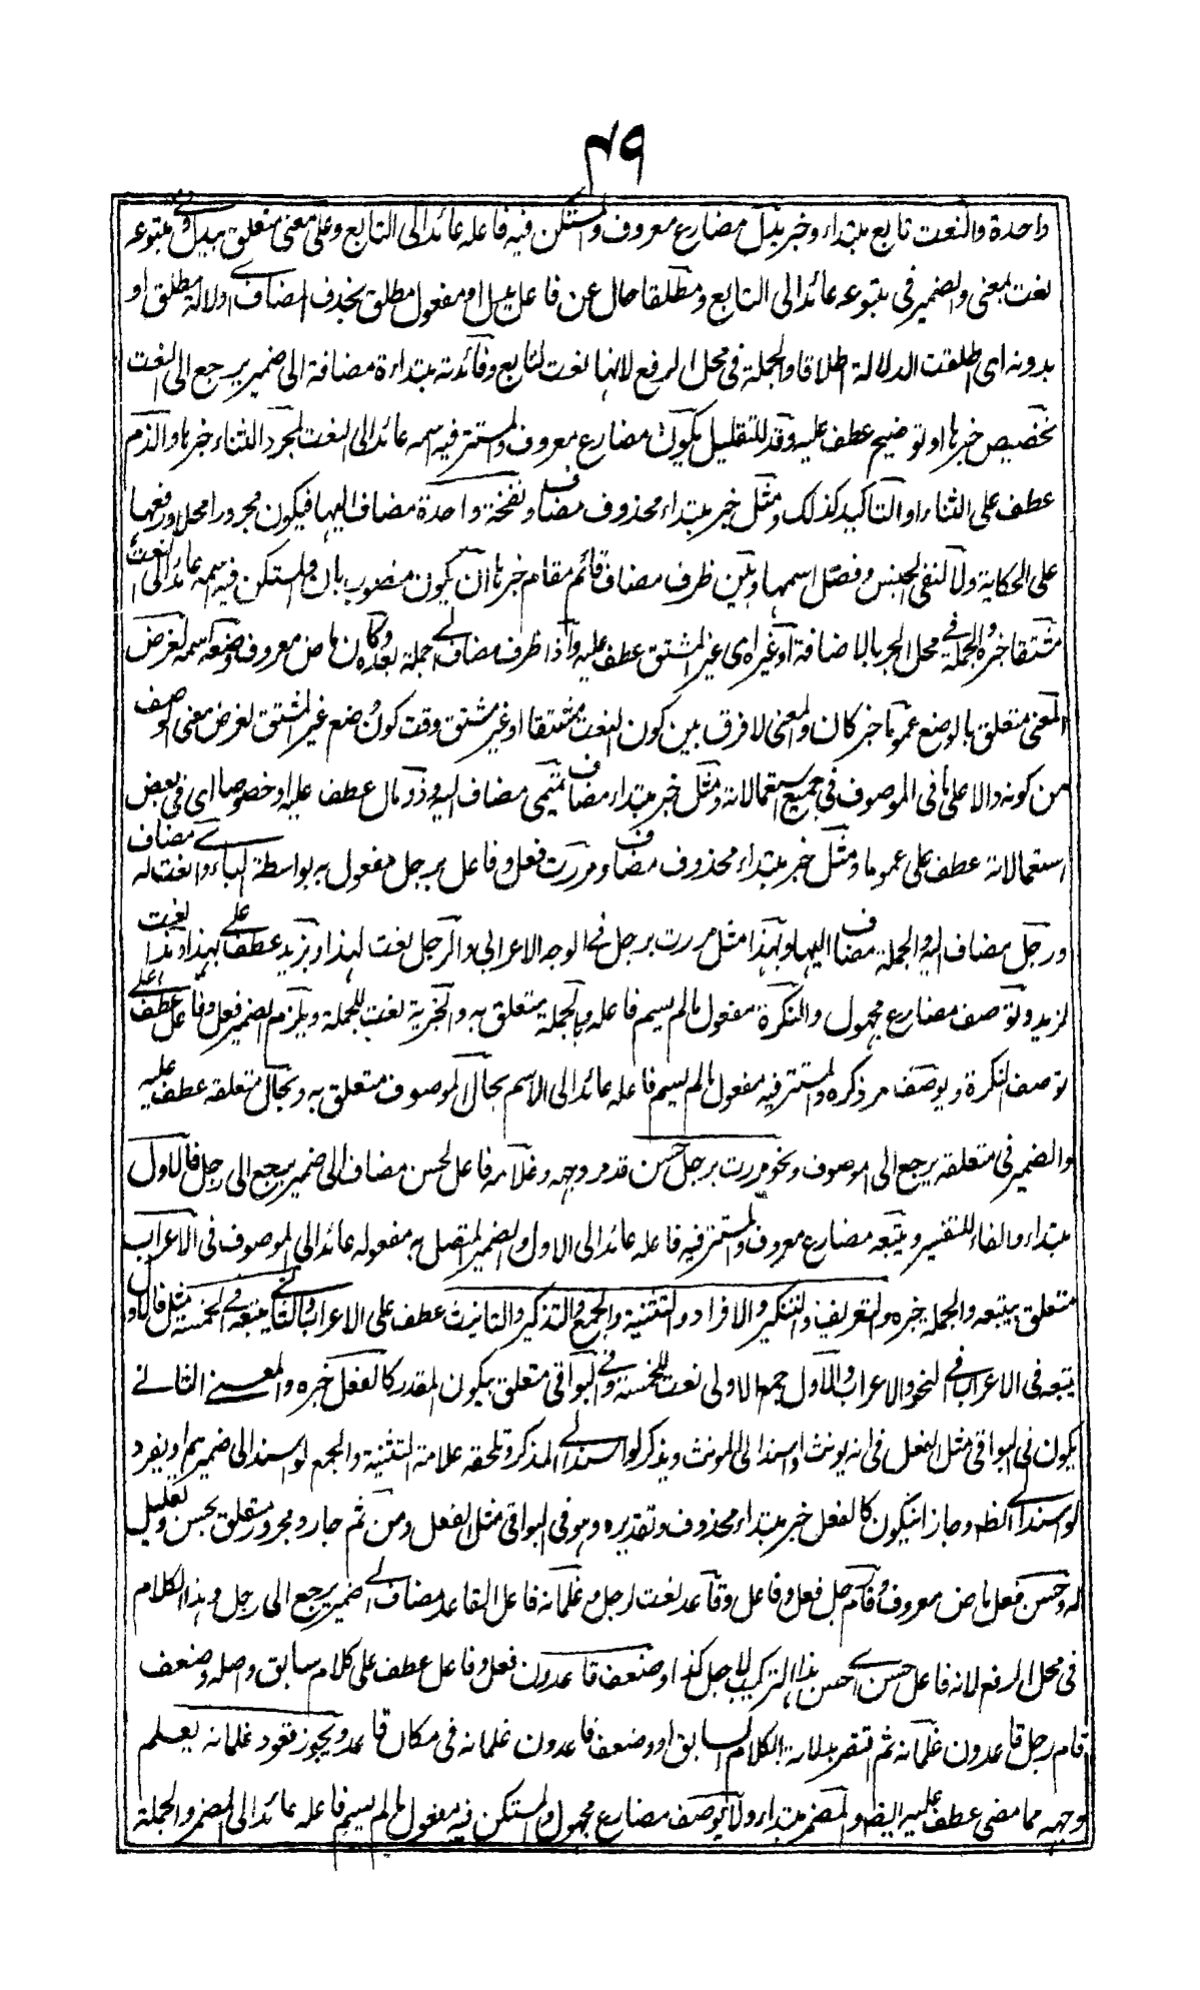 ٤٩
واحدة والنعت تابع مبتداء وخبر يدل مضارع معروف والمستكن فيه فاعله عائد الى التابع وعلى معنى متعلق بيدل وفي متبوعه
نعت لمعنى والضمير فى متبوعه عائد الى التابع ومطلقا حال عن فاعل يدل او مفعول مطلق بحذف المضاف اے دلالة مطلق او
بدونه اى اطلقت الدلالة اطلاقا والجملة فى محل الرفع لانها نعت لتابع وفائدته مبتداءة مضافة الى ضمير يرجع الى النعت
تخصيص خبرها او توضيح عطف عليه وقد للتقليل يكون مضارع معروف والمستتر فيه اسمه عائد الى النعت لمجرد الثناء خبرها والذم
عطف على الثناء او التاكيد كذلك ومثل خبر مبتداء محذوف مضاف ونفخة واحدة مضاف اليها فيكون مجرورا محلا ورفعها
على الحكاية ولا لنفى الجنس وفصل اسمها وبين ظرف مضاف قائم مقام خبرها ان يكون منصوب بان والمستكن فيه اسمه عائد الى النعت
مشتقا خبره والجملة فى محل الجر بالاضافة او غيره اى غير المشتق عطف عليه واذا ظرف مضاف الے جملة بعده وكان ماض معروف وضعه اسمه لغرض
المعنى متعلق بالوضع عموما خبر كان والمعنى لا فرق بين كون النعت مشتقا او غير مشتق وقت كون وضع غير المشتق لغرض معنى الوصف
من كونه دالا على ما فى الموصوف فى جميع استعمالاته ومثل خبر مبتداء مضاف تميمى مضاف اليه وذو مال عطف عليه او خصوصا اى فى بعض
استعمالاته عطف على عموما ومثل خبر مبتداء محذوف مضاف ومررت فعل وفاعل برجل مفعول به بواسطة الباء واى نعت له مضاف
ورجل مضاف اليه والجملة مضاف اليها وبهذا مثل مررت برجل فى الوجه الاعرابى والرجل نعت لهذا وبزيد عطف على بهذا وهذا نعت
لزيد وتوصف مضارع مجهول والنكرة مفعول ما لم يسم فاعله وبالجملة متعلق به والخبرية نعت للجملة ويلزم الضمير فعل وفاعل عطف على
توصف النكرة ويوصف مر ذكره والمستتر فيه مفعول ما لم يسم فاعله عائد الى الاسم بحال الموصوف متعلق به وبحال متعلقه عطف عليه
والضمير فى متعلقه يرجع الى الموصوف ونحو مررت برجل حسن قد مر وجهه وغلامه فاعل لحسن مضاف الى ضمير يرجع الى رجل فالاول
مبتداء والفاء للتفسير ويتبعه مضارع معروف والمستتر فيه فاعله عائد الى الاول والضمير المتصل به مفعوله عائد الى الموصوف فى الاعراب
متعلق بيتبعه والجملة خبره والتعريف والتنكير والافراد والتثنية والجمع والتذكير والتانيث عطف على الاعراب والثانى يتبعه فى الخمسة مثل فالاول
يتبعه فى الاعراب فى النحو والاعراب والاول جمع الاولى نعت للخمسة وفى البواقى متعلق بيكون المقدر كالفعل خبره والمعنے الثانے
يكون فى البواقى مثل الفعل فى انه يونث لو اسند الى المونث ويذكر لو اسند الے المذكر وتلحقه علامة التثنية والجمع لو اسند الى ضميرهم او يفرد
لو اسند الے الظ وجاز ان يكون كالفعل خبر مبتداء محذوف وتقديره وهو فى البواقى مثل الفعل ومن ثم جار ومجرور متعلق بحسن وتعليل
له وحسن فعل ماض معروف وقام رجل فعل وفاعل وقاعد نعت لرجل وغلمانه فاعل القاعد مضاف الے ضمير يرجع الى رجل وهذا الكلام
فى محل الرفع لانه فاعل حسن اے حسن هذا التركيب لاجل كذا وضعف قاعدون فعل وفاعل عطف على كلام سابق واصله وضعف
قام رجل قاعدون غلمانه ثم اقتصر بدلالة الكلام السابق او وضعف قاعدون غلمانه فى مكان قاعد ويجوز قعود غلمانه يعلم
وجهه مما مضى عطف عليه ايضا والمضمر مبتداء ولا يوصف مضارع مجهول والمستكن فيه مفعول ما لم يسم فاعله عائد الى المضمر والجملة